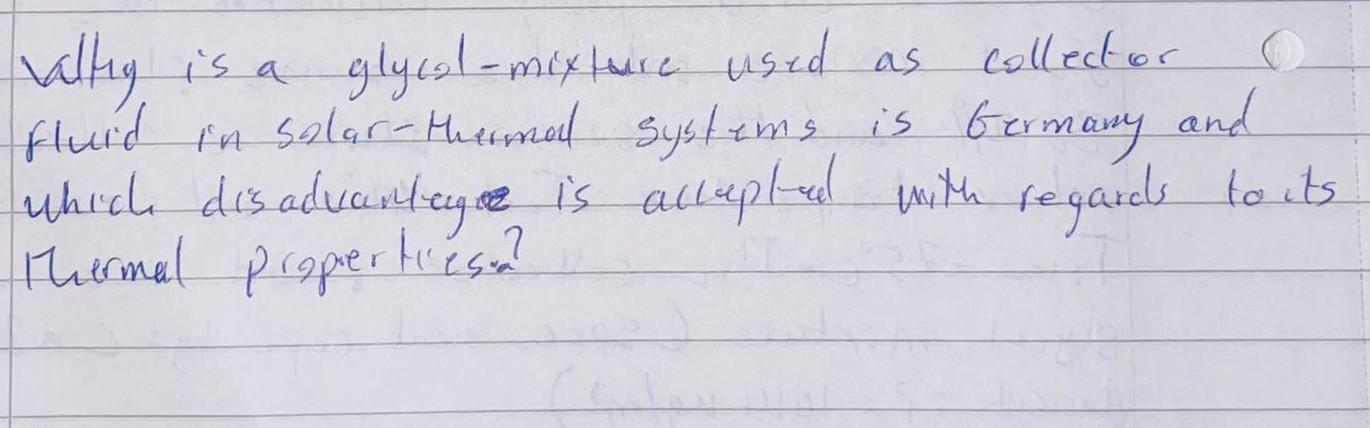 Why is a glycol-mixture used as collector
fluid in solar-thermal systems is Germany and
which disadvantage is accepted with regards to its
thermal properties?